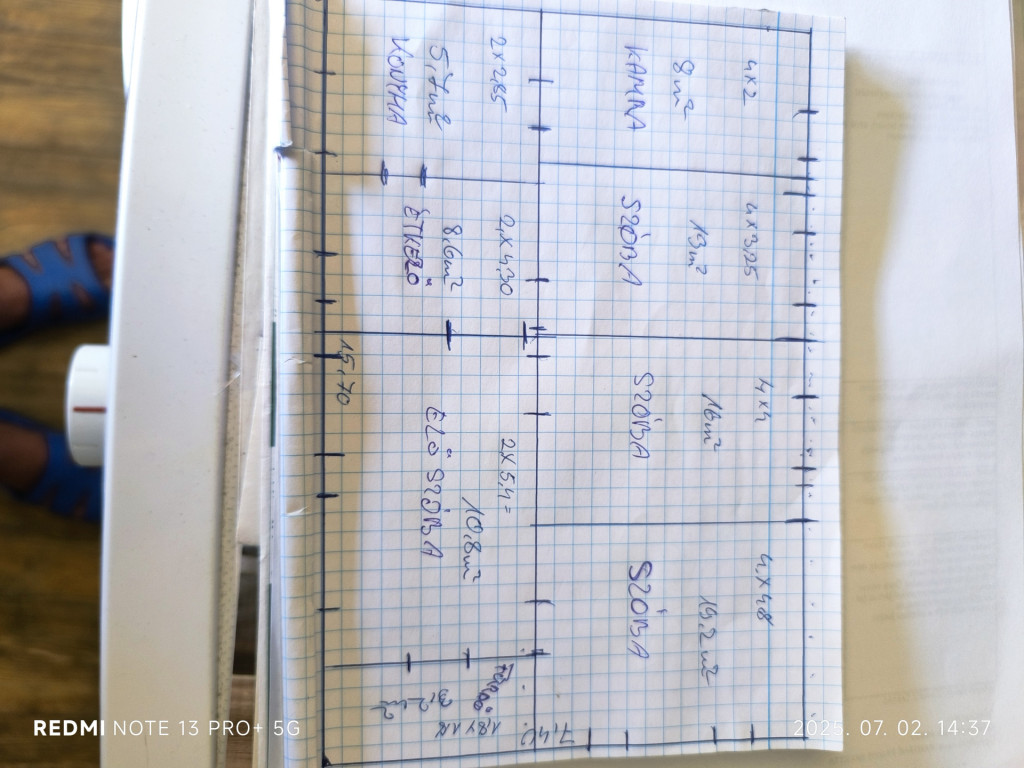 4x2
8m²
KAMRA
4x3,25
13m²
SZÓBA
4x4
16m²
SZÓBA
4x4,8
19,2 m²
SZÓBA
2x2,85
5,7m²
KONYHA
2x4,30
8,6m²
ÉTKEZŐ
2x5,4=
10,8m²
ELŐ SZÓBA
3,2
7,40
15,70
REDMI NOTE 13 PRO+ 5G
2025. 07. 02. 14:37